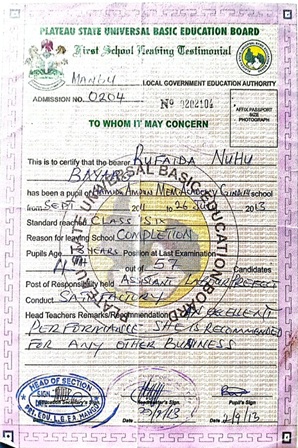 PLATEAU STATE UNIVERSAL BASIC EDUCATION BOARD
First School Leaving Testimonial
MANGU LOCAL GOVERNMENT EDUCATION AUTHORITY
ADMISSION NO. 0204 Nº 0202104
AFFIX PASSPORT
SIZE
PHOTOGRAPH
TO WHOM IT MAY CONCERN
This is to certify that the bearer RUFAIDA NUHU
BAYARO
has been a pupil of MEM. ACADEMY school
from SEPT 2011 to 26 2013
Standard reached CLASS SIX
Reason for leaving School COMPLETION
Pupils Age YEARS Position at Last Examination
out of 57 Candidates
Post of Responsibility held PREFECT
Conduct SATISFACTORY
Head Teachers Remarks/Recommendation AN EXCELLENT
PERFORMANCE SHE IS RECOMMENDED
FOR ANY OTHER BUSINESS
HEAD OF SECTION
SIGN
PRI. EDU. L.G.E.A MANGU
Education Secretary's Sign
Pupil's Sign
Date
Date